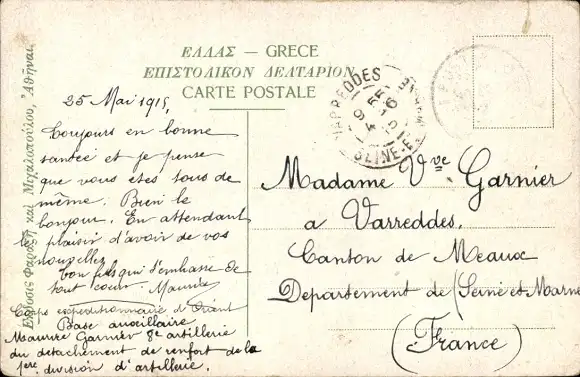 ΕΛΛΑΣ — GRECE
ΕΠΙΣΤΟΛΙΚΟΝ ΔΕΛΤΑΡΙΟΝ
CARTE POSTALE
25 Mai 1915,
Toujours en bonne
santée et je pense
que vous êtes tous de
même. Bien le
bonjour. En attendant
le plaisir d'avoir de vos
nouvelles
bon fils qui t'embrasse de
tout cœur. Maurice
Corps expéditionnaire d'Orient
Base auxillaire
Maurice Garnier 8e artillerie
du détachement de renfort de la
1ere division d'artillerie.
VARREDDES
SEINE-ET-MARNE
Madame Vve Garnier
a Varreddes.
Canton de Meaux
Departement de (Seine et Marne
(France)
Ἔκδοσις Φαραζῆ καὶ Μιχαλοπούλου, Ἀθῆναι.